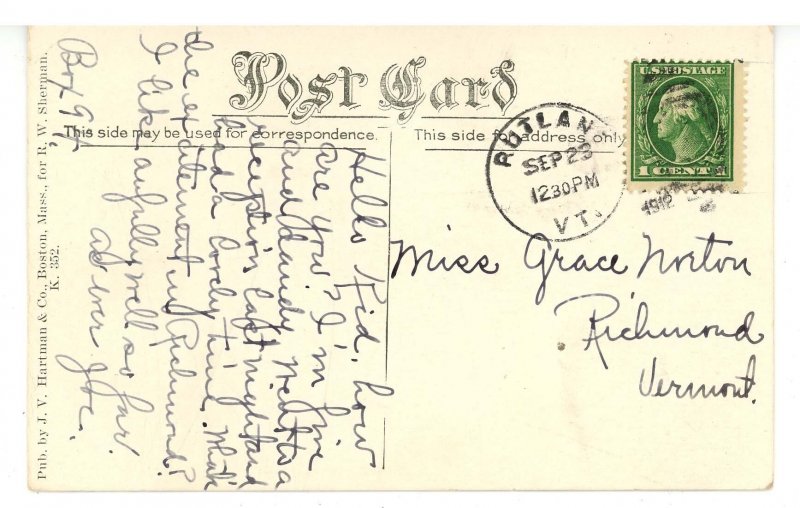 Post Card
This side may be used for correspondence.
This side for address only
U.S. POSTAGE
1 CENT 1
RUTLAND
SEP 23
12 30 PM
VT.
1912
Miss Grace Norton
Richmond
Vermont.
Hello Kid, how
are you? I'm fine
and dandy. Went to a
reception last night and
had a lovely time. What's
the excitement in Richmond?
I like awfully well so far.
as ever
Joe.
Box 97.
Pub. by J. V. Hartman & Co., Boston, Mass., for R. W. Sherman.
K. 352.